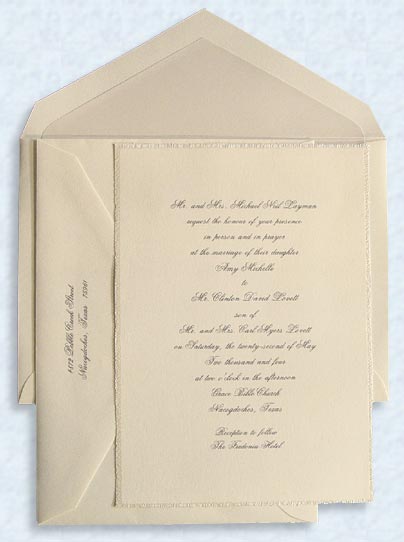 Mr. and Mrs. Michael Neil Layman
request the honour of your presence
in person and in prayer
at the marriage of their daughter
Amy Michelle
to
Mr. Clinton David Lovett
son of
Mr. and Mrs. Carl Myers Lovett
on Saturday, the twenty-second of May
Two thousand and four
at two o'clock in the afternoon
Grace Bible Church
Nacogdoches, Texas
Reception to follow
The Fredonia Hotel
Bibb Creek Street
Nacogdoches, Texas 75961